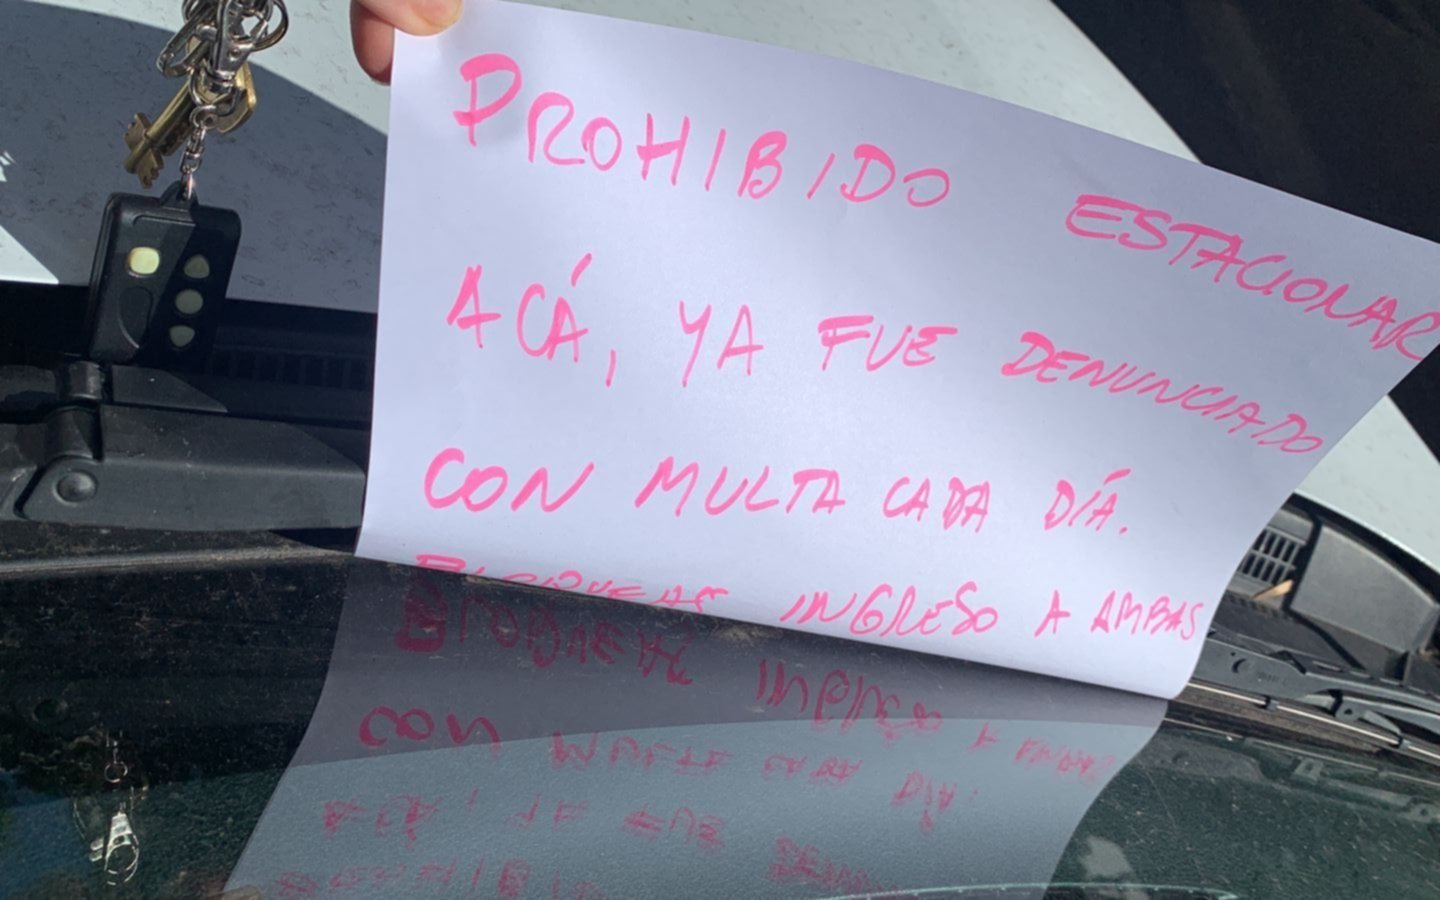 PROHIBIDO ESTACIONAR
ACÁ, YA FUE DENUNCIADO
CON MULTA CADA DÍA.
BLOQUEAS INGRESO A AMBAS